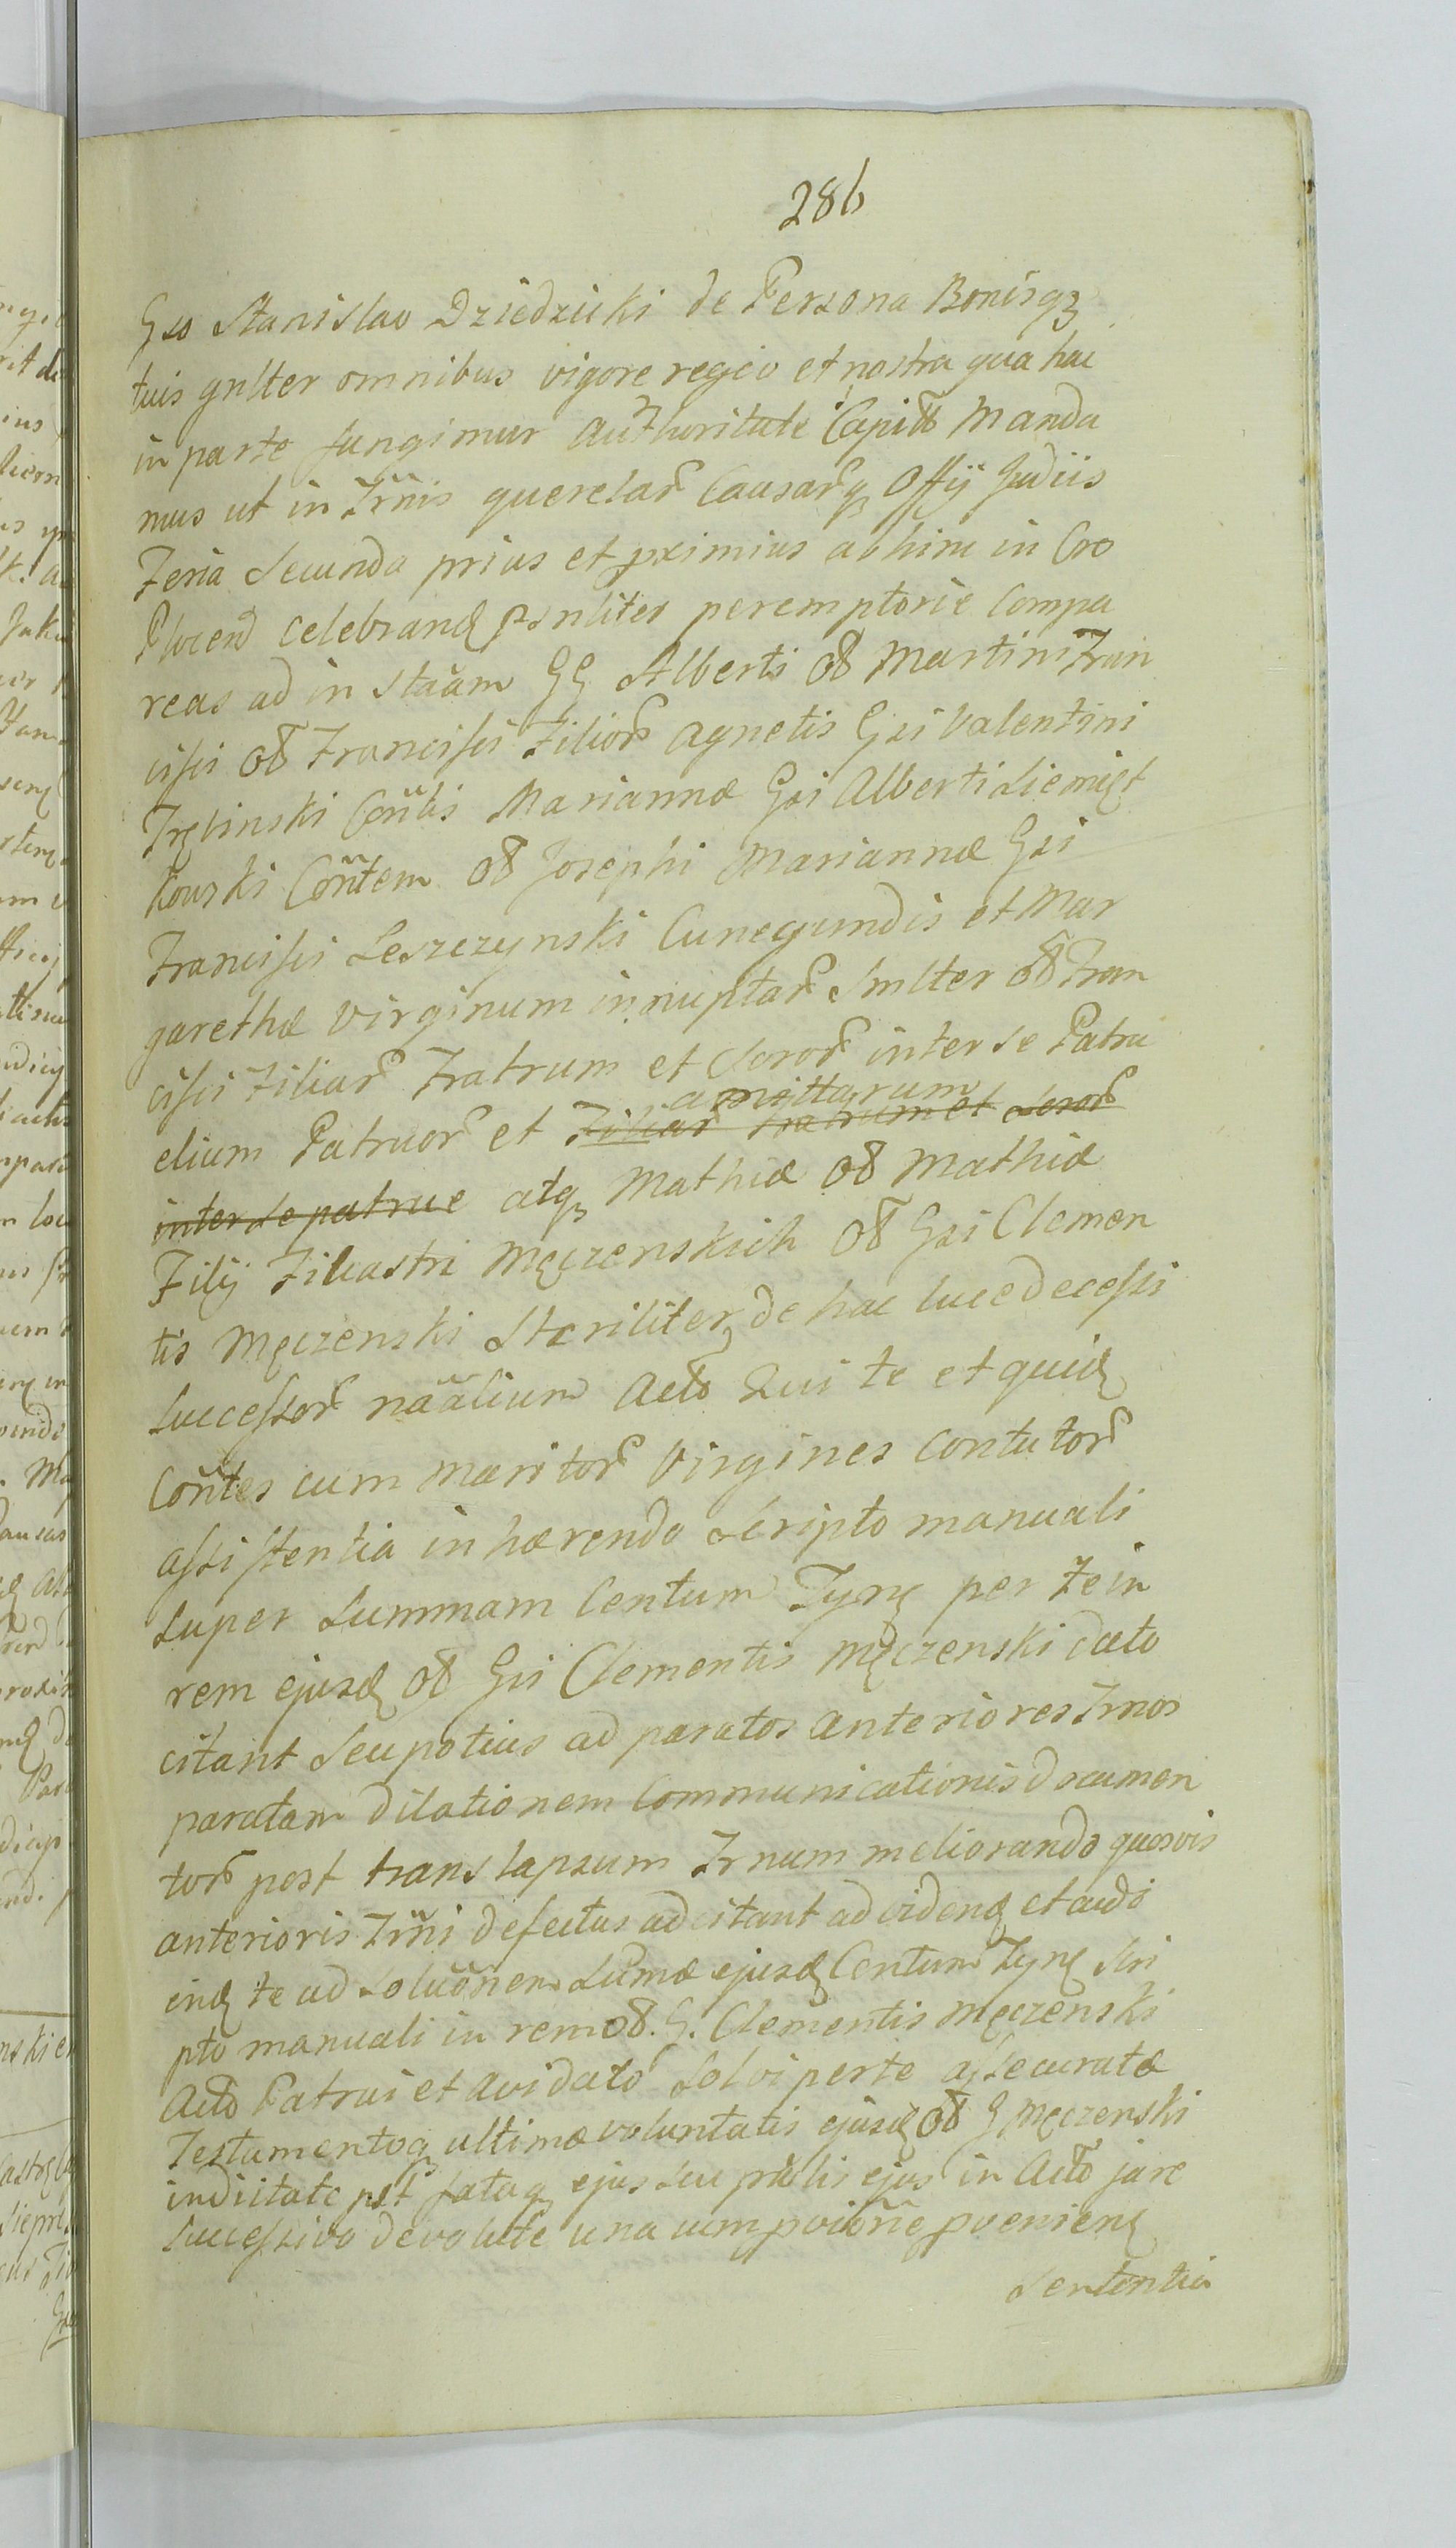 286
Gso Stanislao Dziedzicki de Persona Bonisqz
tuis gnlter omnibus vigore regio et nostra qua hac
in parte fungimur authoritate Capitli Manda
mus ut in Trnis querelar Causarqz Offij Judiis
Feria Secunda prius et pximius ab hinc in Cro
celebrand psnliter peremptorie Compa
reas ad in staam GG Alberti o8 Martini Fran
cisci o8 Francisci Filior Agnetis Gsi Valentini
Conlis Mariannæ Gsi Alberti Siemiąt
kowski Contem o8 Josephi Mariannæ Gsi
Francisci Leszczynski Cunegundis et Mar
garethæ Virginum innuptar Smlter o8 Fran
cisci Filiar Fratrum et Soror inter se Patru
amittarum
elium Patruor et Filiar Fratrum et Soror
inter se patrue atqz Mathiæ o8 Mathiæ
Filij Filiastri Męczenskich o8 Gsi Clemen
tis Męczenski Steriliter de hac luce decessi
Successor naalium Acto Qui te et quid
Contes cum maritor Virgines contutor
assistentia in hærendo Scripto manuali
super Summam Centum Tyng per te in
rem ejusd o8 Gsi Clementis Męczenski dato
citant Seu potius ad paratos anteriores Trnos
paratam dilationem Communicationis documen
tor post translapsum Trnum meliorando quosvis
anterioris Trni defectus adcitant ad vidend et audi
end te ad Soluonem Sumæ ejusd Centum Tyng Scri
pto manuali in rem o8. G. Clementis Męczenski
Acto Patrui et Avi dato Solvi per te assecuratæ
Testamentoqz ultimæ voluntatis ejusd o8 G Męczenski
pst fataqz ejus seu ejus in Acto jure
Successivo devolute una cum poene pvenieng
Sententia